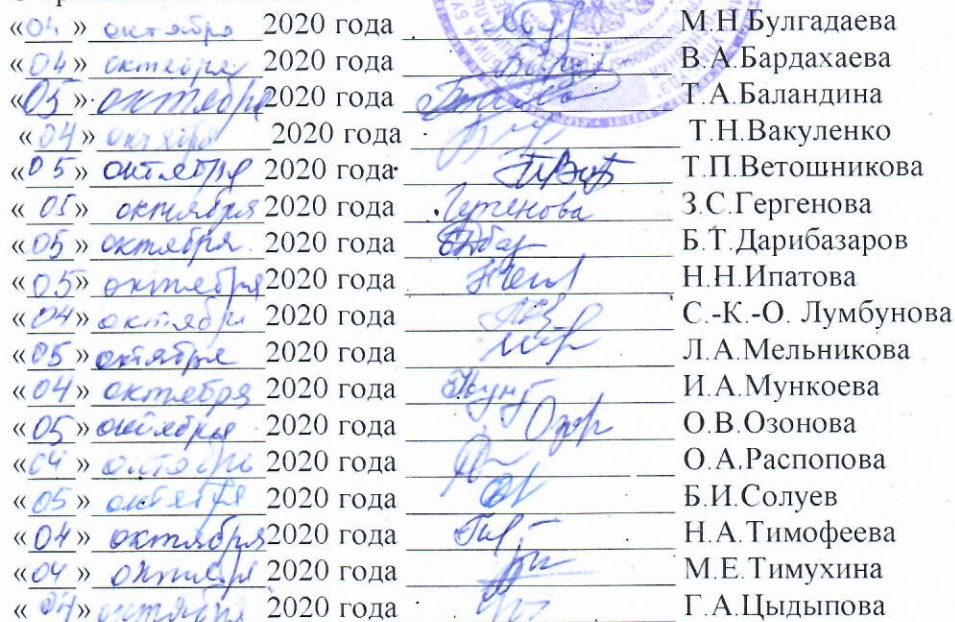 «04» октября 2020 года М.Н.Булгадаева
«04» октября 2020 года В.А.Бардахаева
«05» октября 2020 года Т.А.Баландина
«04» октября 2020 года Т.Н.Вакуленко
«05» октября 2020 года Т.П.Ветошникова
«05» октября 2020 года Гергенова З.С.Гергенова
«05» октября 2020 года Б.Т.Дарибазаров
«05» октября 2020 года Н.Н.Ипатова
«04» октября 2020 года С.-К.-О. Лумбунова
«05» октября 2020 года Л.А.Мельникова
«04» октября 2020 года И.А.Мункоева
«05» октября 2020 года О.В.Озонова
«04» октября 2020 года О.А.Распопова
«05» октября 2020 года Б.И.Солуев
«04» октября 2020 года Н.А.Тимофеева
«04» октября 2020 года М.Е.Тимухина
«04» октября 2020 года Г.А.Цыдыпова